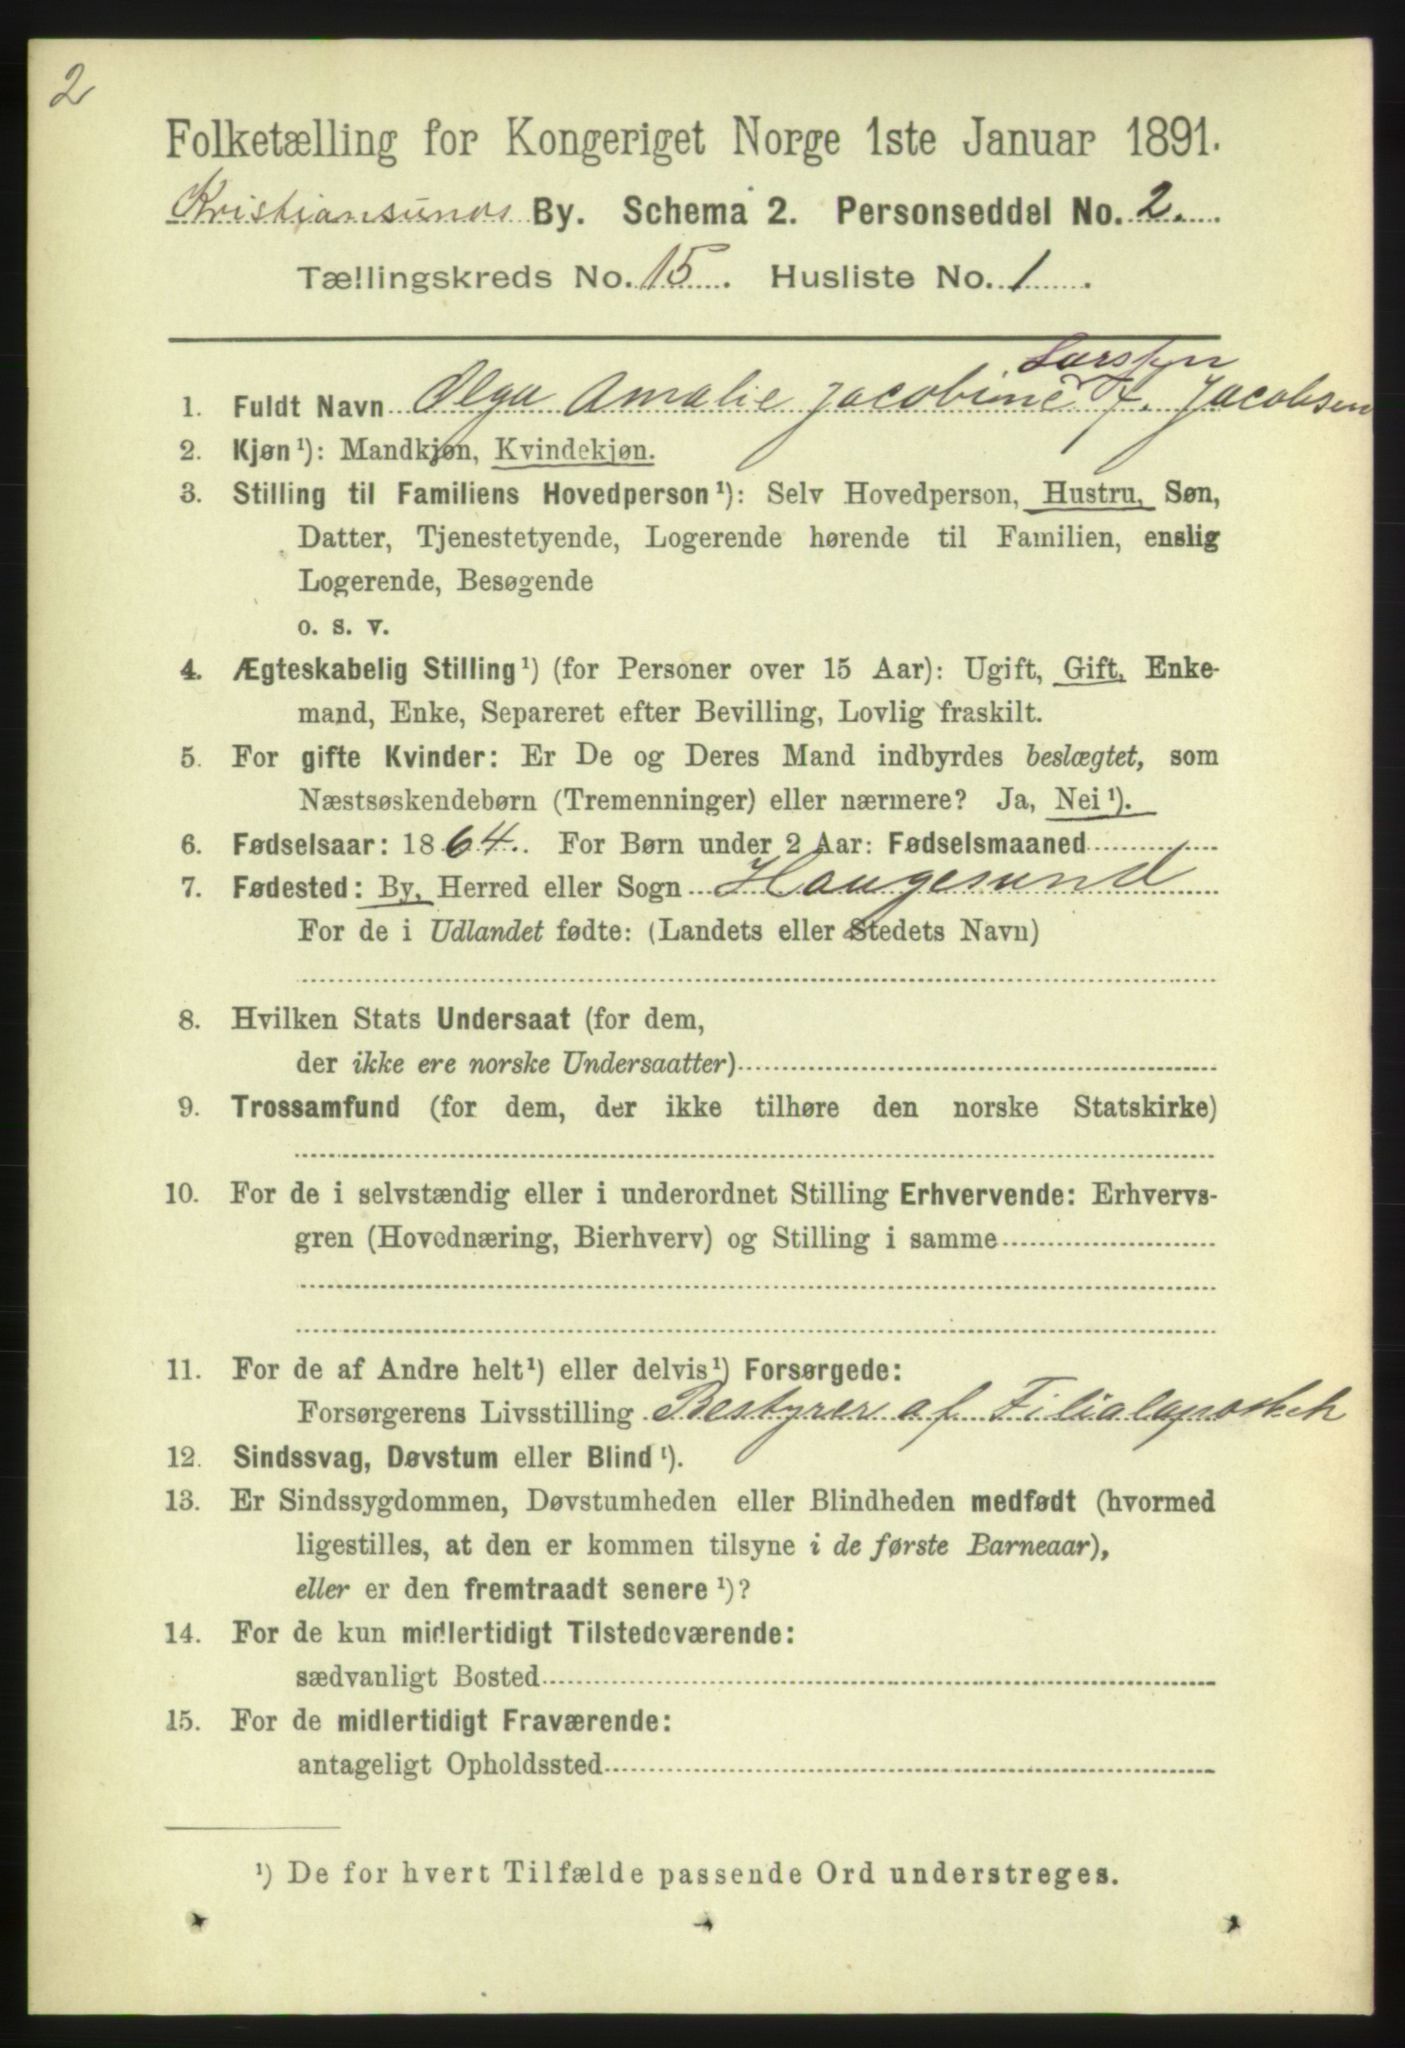 2
Folketælling for Kongeriget Norge 1ste Januar 1891.
Kristiansunds By. Schema 2. Personseddel No. 2.
Tællingskreds No. 15. Husliste No. 1.
1. Fuldt Navn Olga Amalie Jacobine f. Jacobsen
2. Kjøn ¹): Mandkjøn, Kvindekjøn.
3. Stilling til Familiens Hovedperson ¹): Selv Hovedperson, Hustru, Søn,
Datter, Tjenestetyende, Logerende hørende til Familien, enslig
Logerende, Besøgende
o. s. v.
4. Ægteskabelig Stilling ¹) (for Personer over 15 Aar): Ugift, Gift, Enke-
mand, Enke, Separeret efter Bevilling, Lovlig fraskilt.
5. For gifte Kvinder: Er De og Deres Mand indbyrdes beslægtet, som
Næstsøskendebørn (Tremenninger) eller nærmere? Ja, Nei ¹).
6. Fødselsaar: 1864. For Børn under 2 Aar: Fødselsmaaned
7. Fødested: By, Herred eller Sogn Haugesund
For de i Udlandet fødte: (Landets eller Stedets Navn)
8. Hvilken Stats Undersaat (for dem,
der ikke ere norske Undersaatter)
9. Trossamfund (for dem, der ikke tilhøre den norske Statskirke)
10. For de i selvstændig eller i underordnet Stilling Erhvervende: Erhvervs-
gren (Hovednæring, Bierhverv) og Stilling i samme
11. For de af Andre helt ¹) eller delvis ¹) Forsørgede:
Forsørgerens Livsstilling Bestyrer af Filialapothek
12. Sindssvag, Døvstum eller Blind ¹).
13. Er Sindssygdommen, Døvstumheden eller Blindheden medfødt (hvormed
ligestilles, at den er kommen tilsyne i de første Barneaar),
eller er den fremtraadt senere ¹)?
14. For de kun midlertidigt Tilstedeværende:
sædvanligt Bosted
15. For de midlertidigt Fraværende:
antageligt Opholdssted
¹) De for hvert Tilfælde passende Ord understreges.